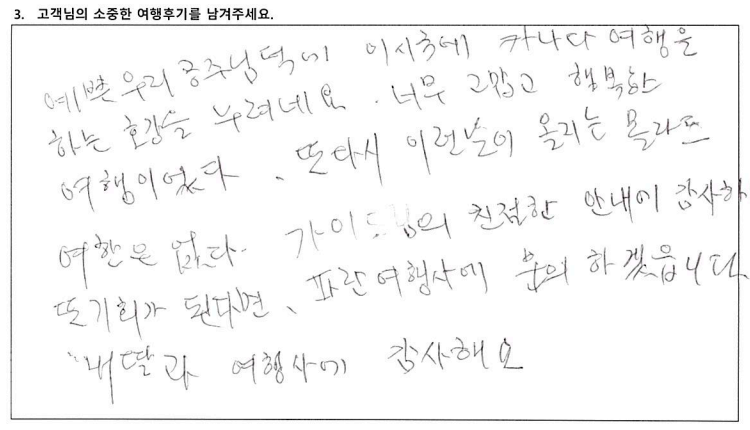 3. 고객님의 소중한 여행후기를 남겨주세요.
예쁜 우리 공주님덕에 이시국에 카나다 여행을
하는 호강을 누려네요. 너무 고맙고 행복한
여행이었다. 또다시 이런날이 올리는 몰라도
여한은 없다. 가이드님의 친절한 안내에 감사하
또기회가 된다면, 파란여행사에 문의 하겠읍니다.
내딸과 여행사에 감사해요